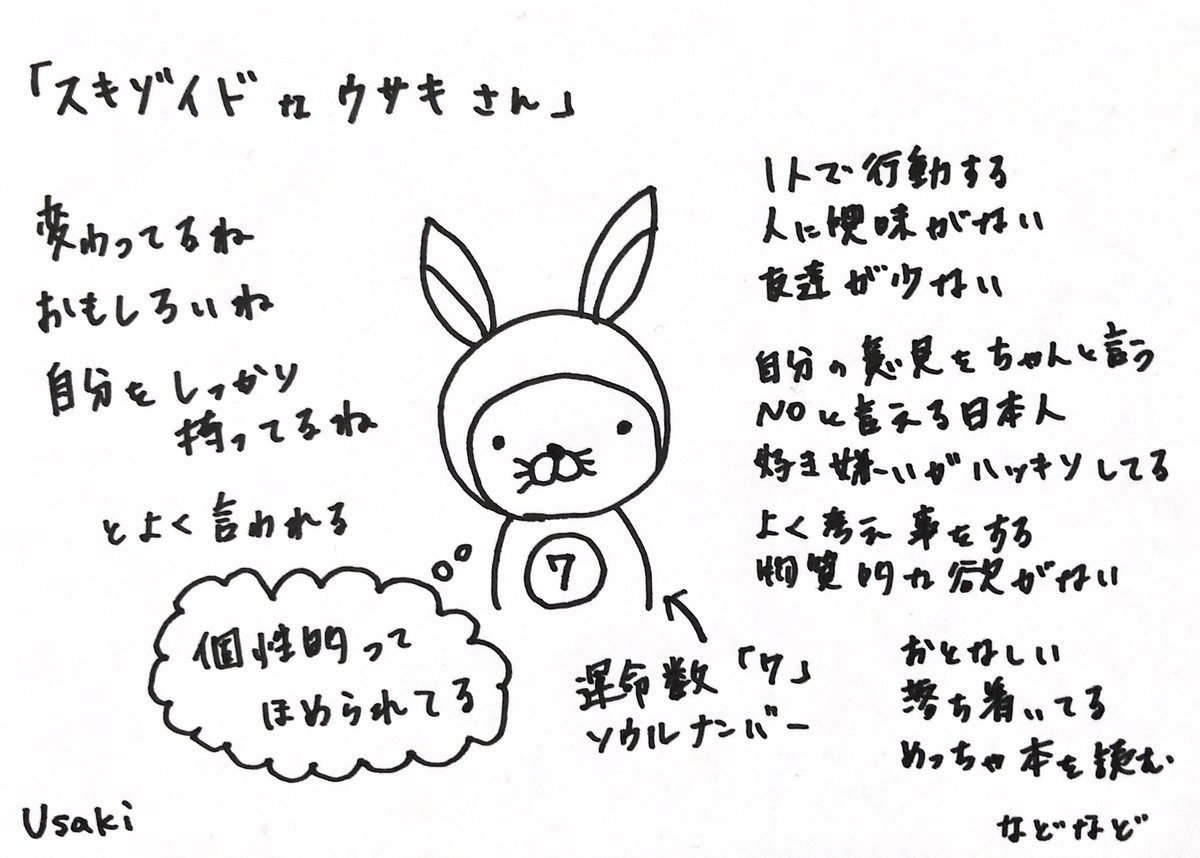 「スキゾイドな ウサキさん」
変わってるね
おもしろいね
自分をしっかり
持ってるね
とよく言われる
個性的って
ほめられてる
7
運命数「7」
ソウルナンバー
1人で行動する
人に興味がない
友達が少ない
自分の意見をちゃんと言う
NOと言える日本人
好き嫌いがハッキリしてる
よく考え事をする
物質的な欲がない
おとなしい
落ち着いてる
めっちゃ本を読む
などなど
Usaki